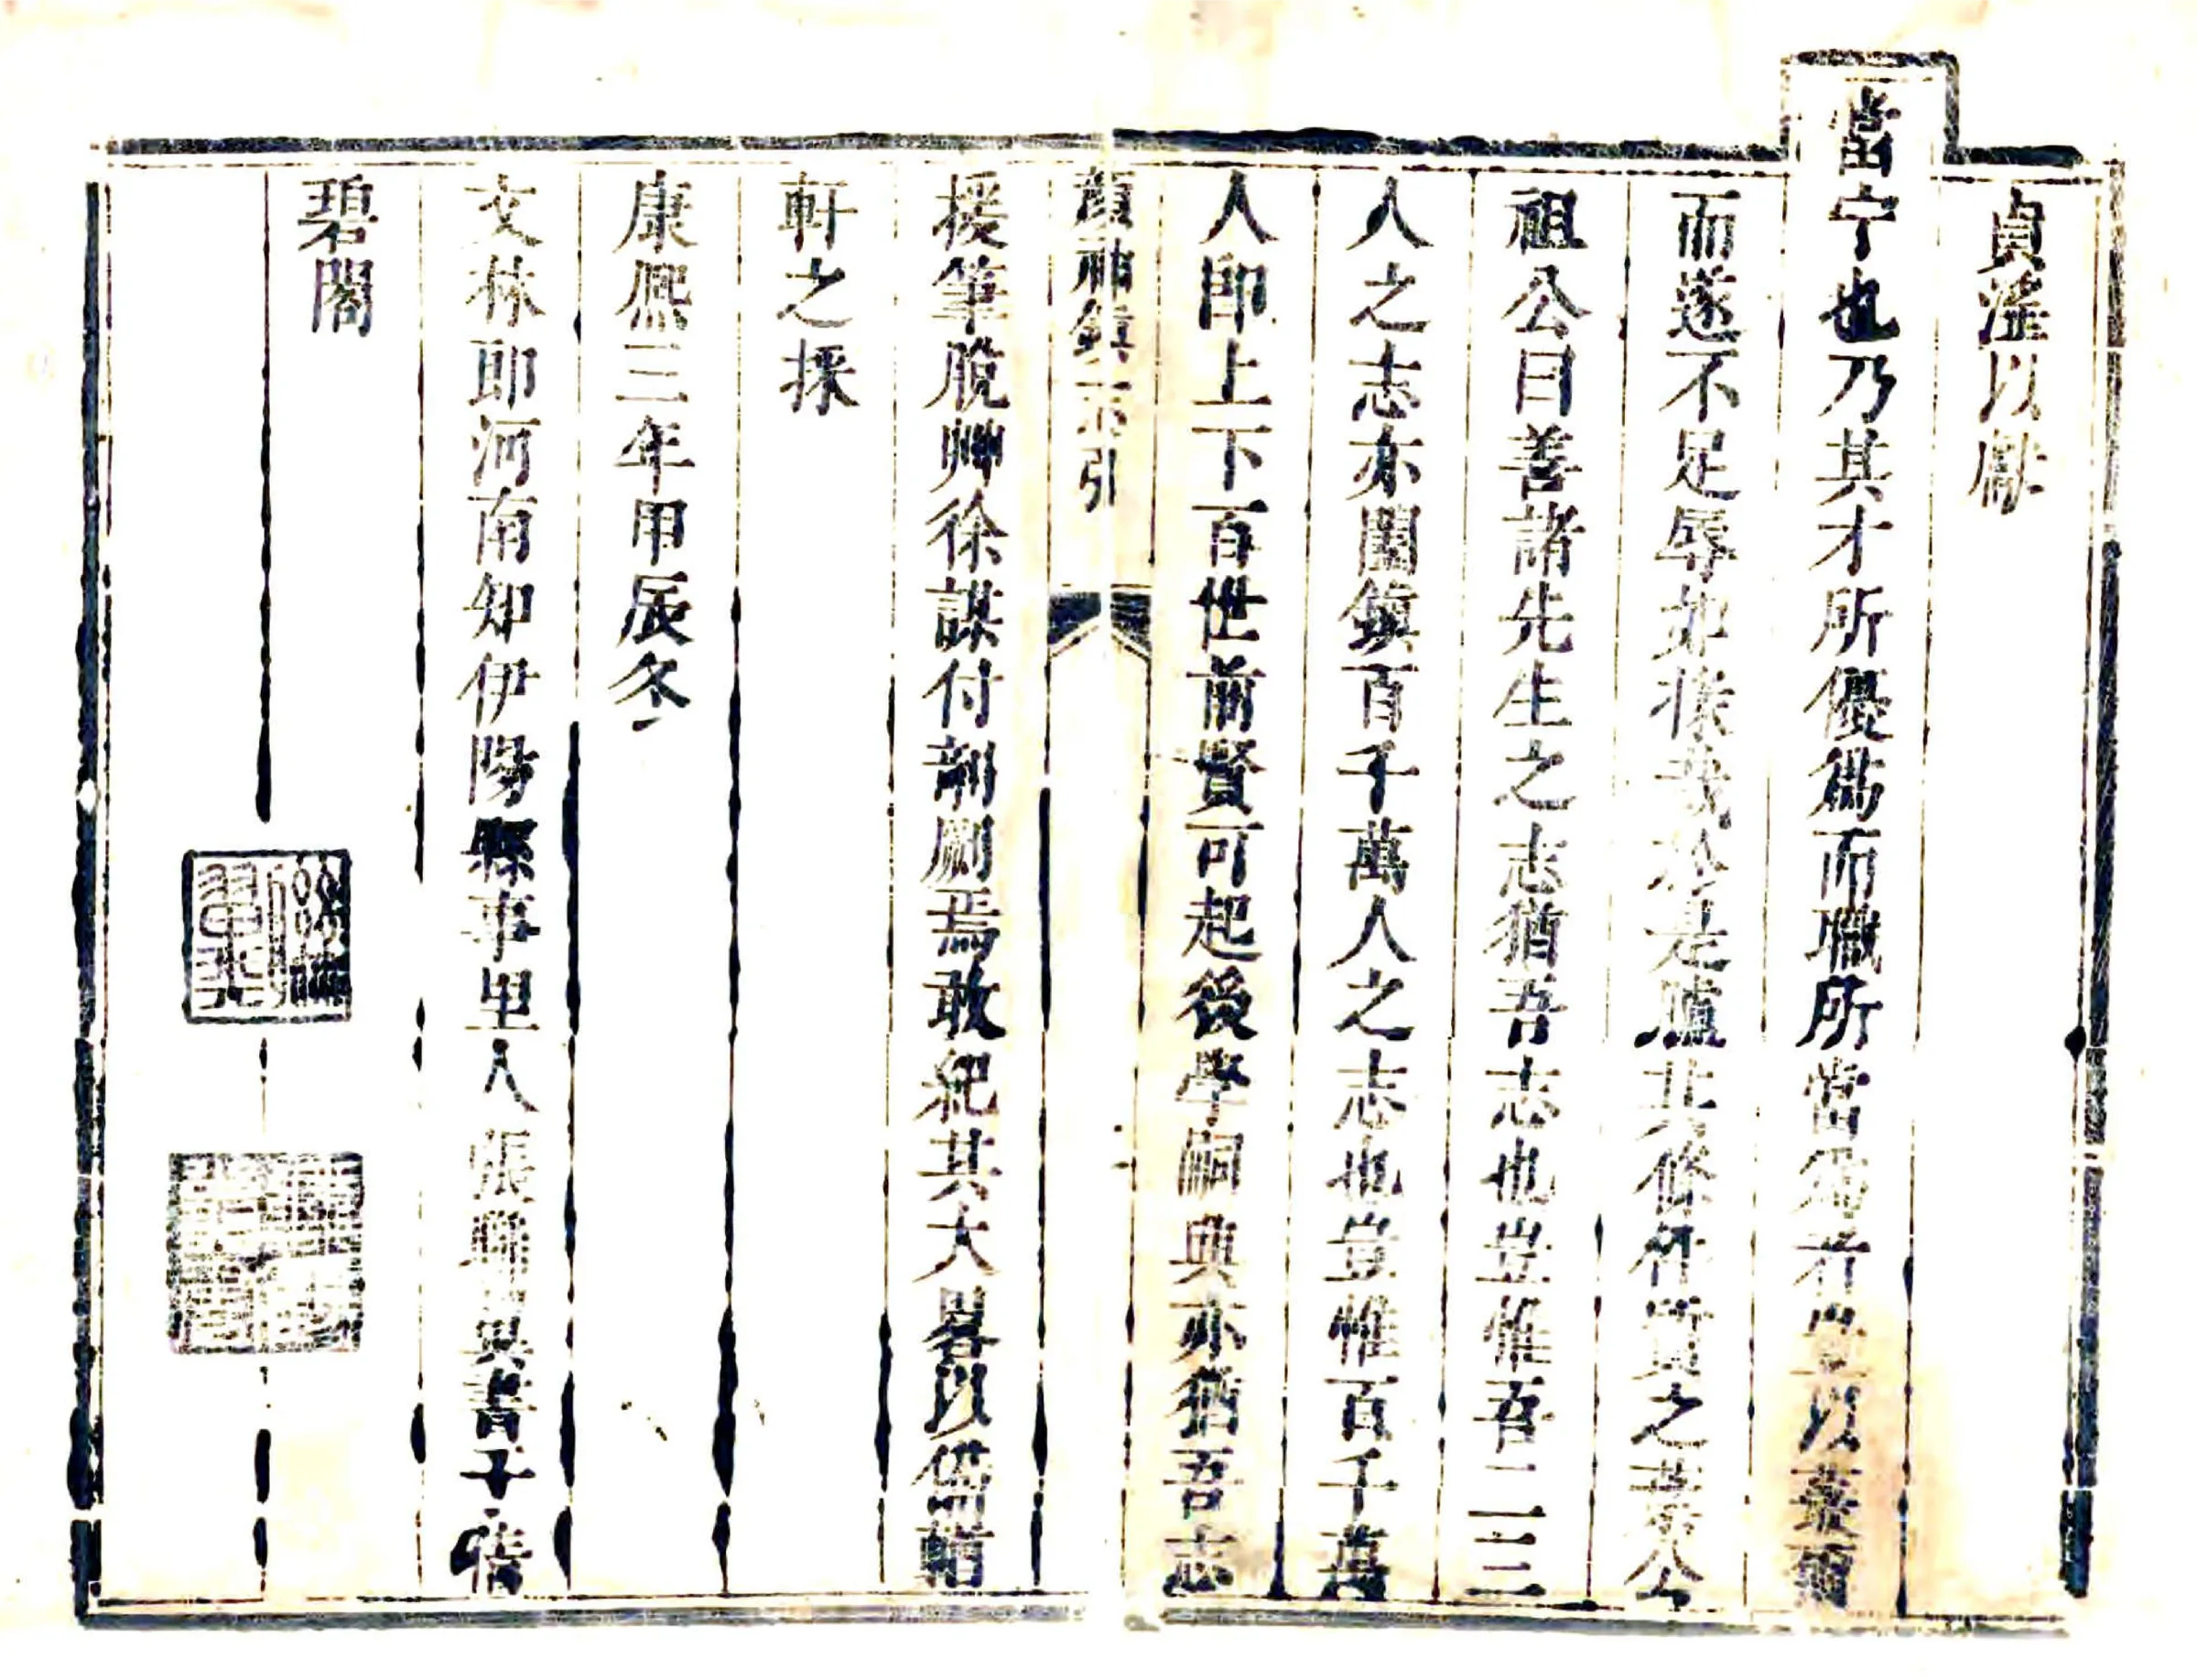 貞淫以獻
當宁也乃其才所優爲而職所當爲者豈以蕞爾
而遂不足辱如椽哉於是臚其條件質之葉公
祖公曰善諸先生之志猶吾志也豈惟吾二三
人之志亦闔鎮百千萬人之志也豈惟百千萬
人卽上下百世前賢可起後學嗣典亦猶吾志
顏神鎮 引
援筆脫艸徐謀付剞劂焉敢紀其大畧以備輶
軒之採
康熙三年甲辰冬
文林郎河南知伊陽縣事里人張聯 書于 情
碧閣